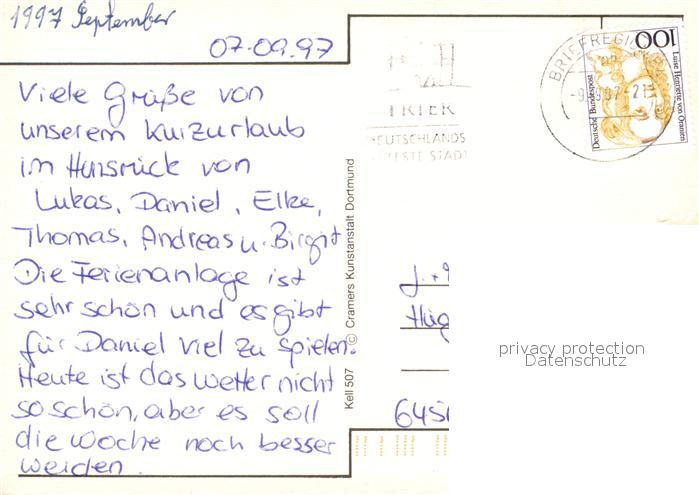 1997 September
07.09.97
Viele Grüße von
unserem Kurzurlaub
im Hunsrück von
Lukas, Daniel, Elke,
Thomas, Andreas u. Birgit
Die Ferienanlage ist
sehr schön und es gibt
für Daniel viel zu spielen.
Heute ist das Wetter nicht
so schön, aber es soll
die Woche noch besser
werden.
Kell 507 © Cramers Kunstanstalt Dortmund
TRIER
DEUTSCHLANDS
ÄLTESTE STADT
BRIEFREG
100
Deutsche Bundespost
Luise Henriette von Oranien
privacy protection
Datenschutz